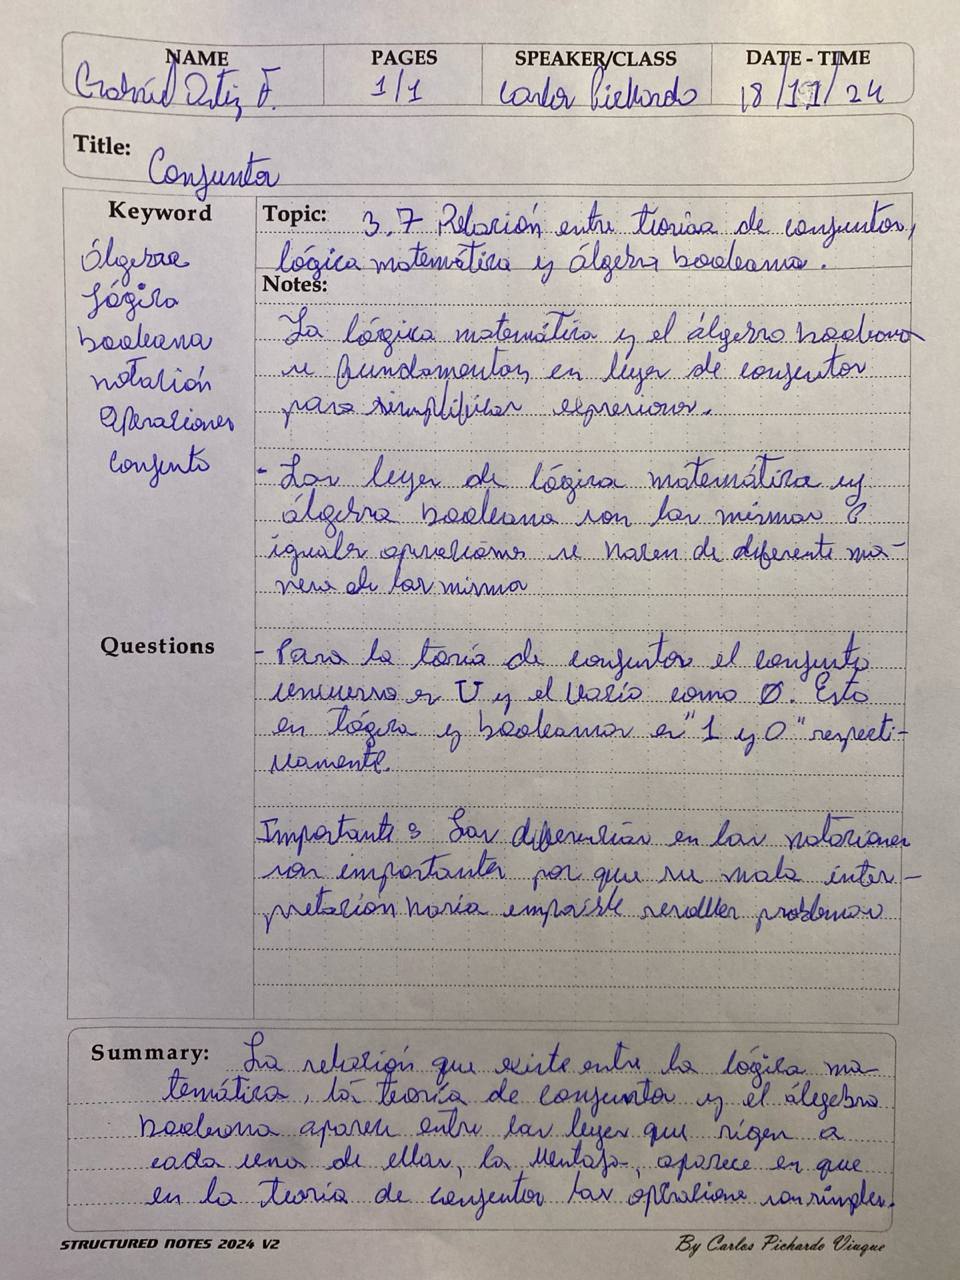 NAME PAGES SPEAKER/CLASS DATE - TIME
Ortiz F. 1/1 Carlos Pichardo 18/11/24
Title: Conjuntos
Keyword
álgebra
Lógica
booleana
notación
Operaciones
conjunto
Questions
Topic: 3.7 Relación entre teorías de conjuntos,
lógica matemática y álgebra booleana.
Notes:
La lógica matemática y el álgebra booleana
se fundamentan en leyes de conjuntos
para simplificar expresiones.
- Las leyes de lógica matemática y
álgebra booleana son las mismas e
iguales operaciones se hacen de diferente ma-
nera de las misma
- Para la toría de conjuntos el conjunto
universo es U y el vacío como Ø. Esto
en lógica y booleanas es "1 y 0" respecti-
vamente.
Importante: Las diferencias en las notaciones
son importantes por que su mala inter-
pretación haría resolver problemas
Summary: La relación que existe entre la lógica ma-
temática, la teoría de conjuntos y el álegebra
booleana aparece entre las leyes que rigen a
cada una de ellas, la ventaja, aparece en que
en la teoría de conjuntos las operacione son simples.
STRUCTURED NOTES 2024 V2 By Carlos Pichardo Viuque